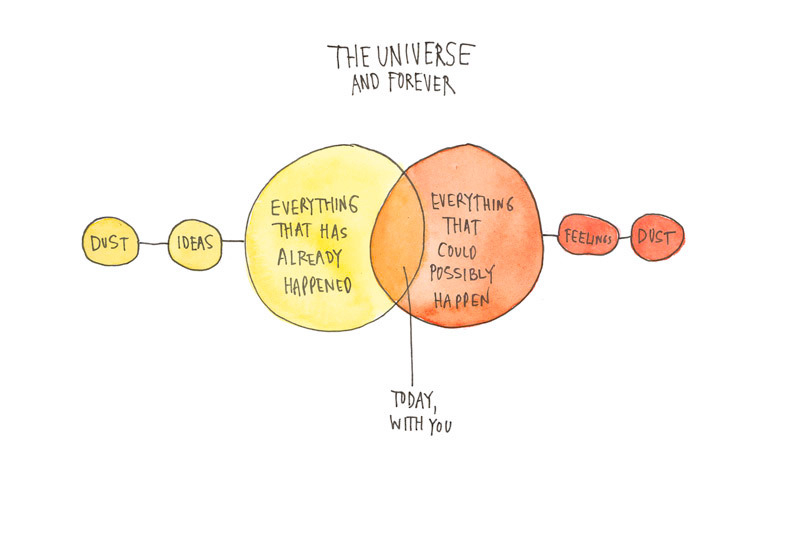 THE UNIVERSE
AND FOREVER
DUST
IDEAS
EVERYTHING
THAT HAS
ALREADY
HAPPENED
EVERYTHING
THAT
COULD
POSSIBLY
HAPPEN
FEELINGS
DUST
TODAY,
WITH YOU